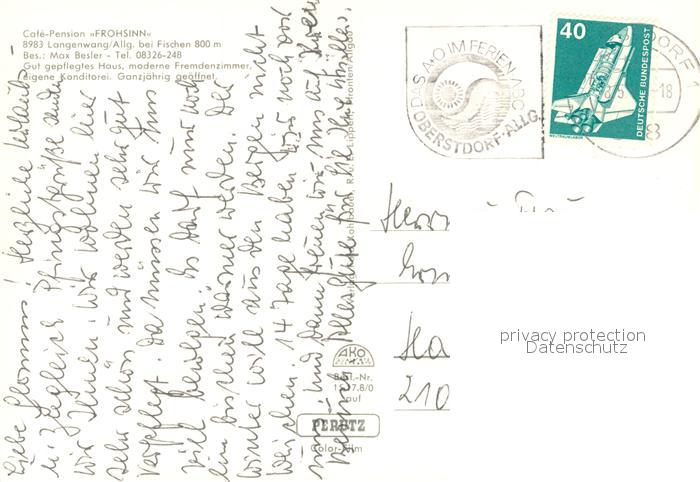 Café-Pension »FROHSINN«
8983 Langenwang/Allg. bei Fischen 800 m
Bes.: Max Besler - Tel. 08326-248
Gut gepflegtes Haus, moderne Fremdenzimmer,
eigene Konditorei. Ganzjährig geöffnet.
DAS A-O IM FERIEN-ABC
OBERSTDORF-ALLG.
40
DEUTSCHE BUNDESPOST
WELTRAUMLABOR
-18
8
Liebe Herzliche Urlaubs-
u. zugleich Pfingstgrüße senden
wir Ihnen. Wir wohnen hier
sehr schön und werden sehr gut
verpflegt. Da müssen wir uns
viel bewegen. Es darf nur noch
ein bischen wärmer werden. Der
Winter will aus den Bergen nicht
weichen. 14 Tage haben wir noch vor
uns und dann freuen wir uns auf
alles Gute für Sie
Herrn
Ha
210
AKO
Best.-Nr.
auf
PERUTZ
Color-Film
privacy protection
Datenschutz